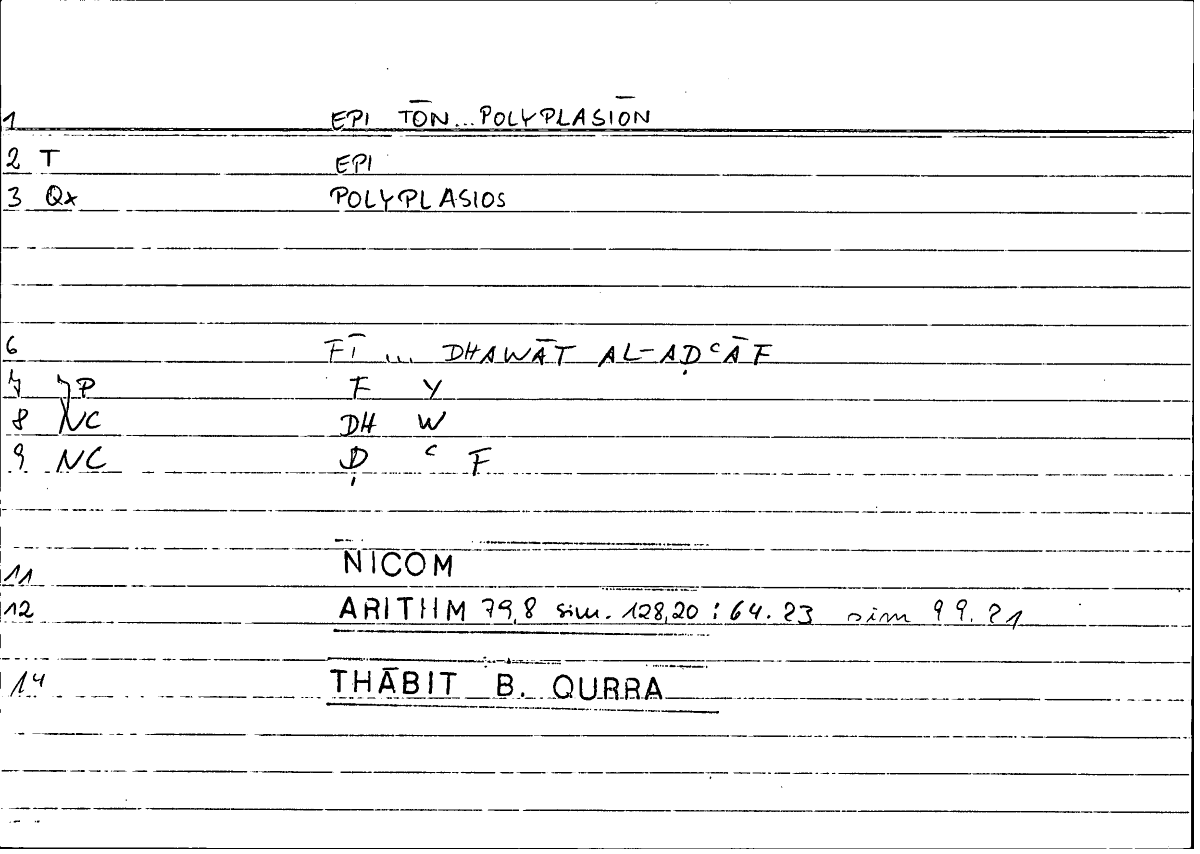 1 EPI TŌN...POLYPLASIŌN
2 T EPI
3 Qx POLYPLASIOS
6 FĪ ... DHAWĀT AL-AḌᶜĀF
7 P F Y
8 NC DH W
9 NC Ḍ ᶜ F
11 NICOM
12 ARITHM 79,8 sim. 128,20 : 64.23 sim 99.21
14 THĀBIT B. QURRA